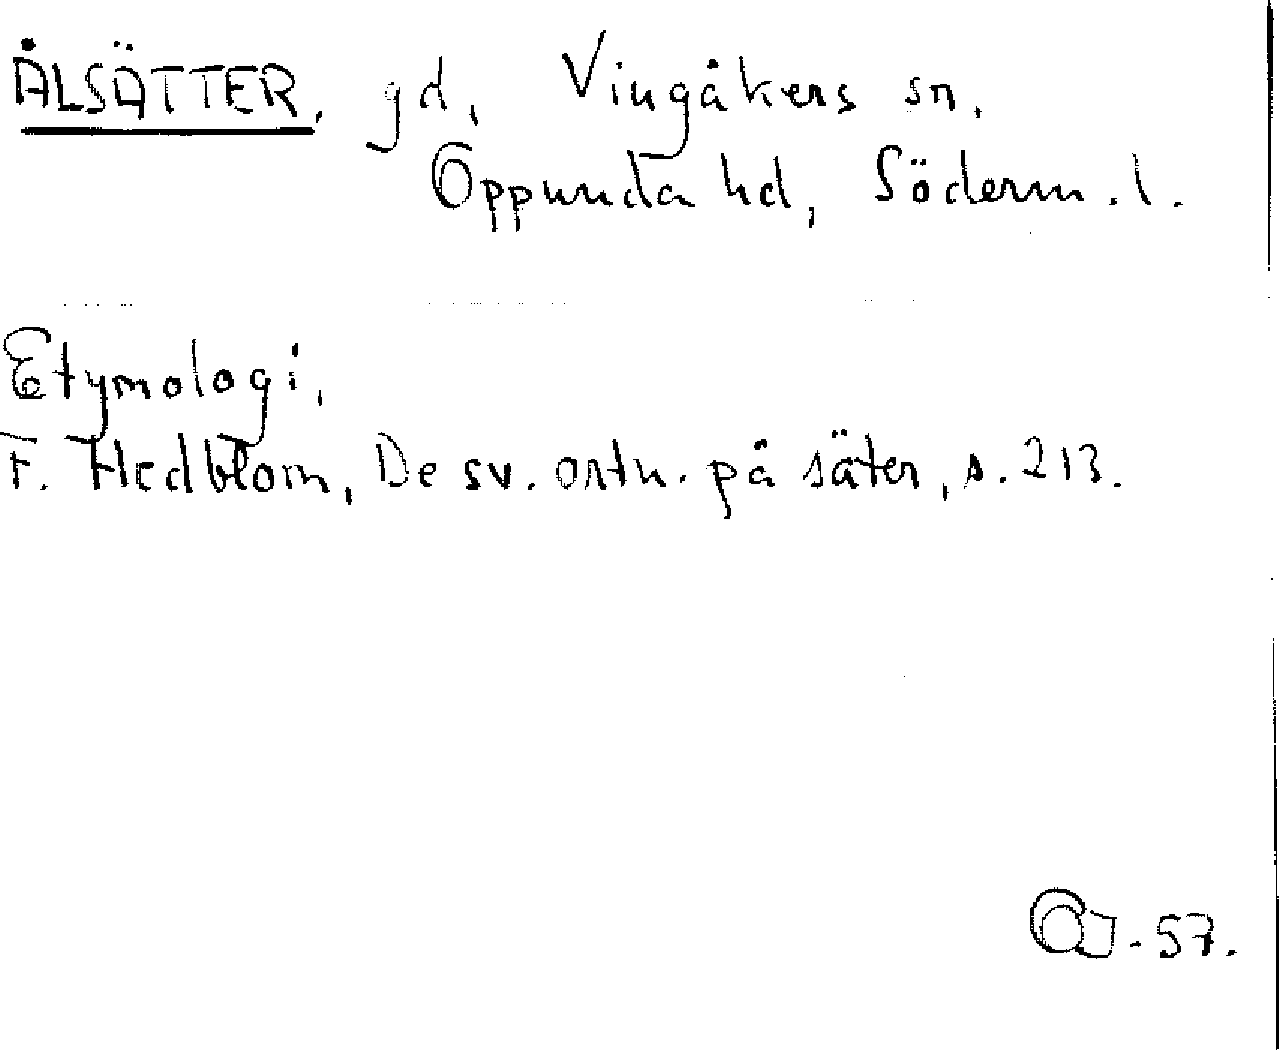 ÅLSÄTTER, gd, Vingåkers sn.
Oppunda hd, Söderm. l.
Etymologi,
F. Hedblom, De sv. ortn. på säter, s. 213.
-57.